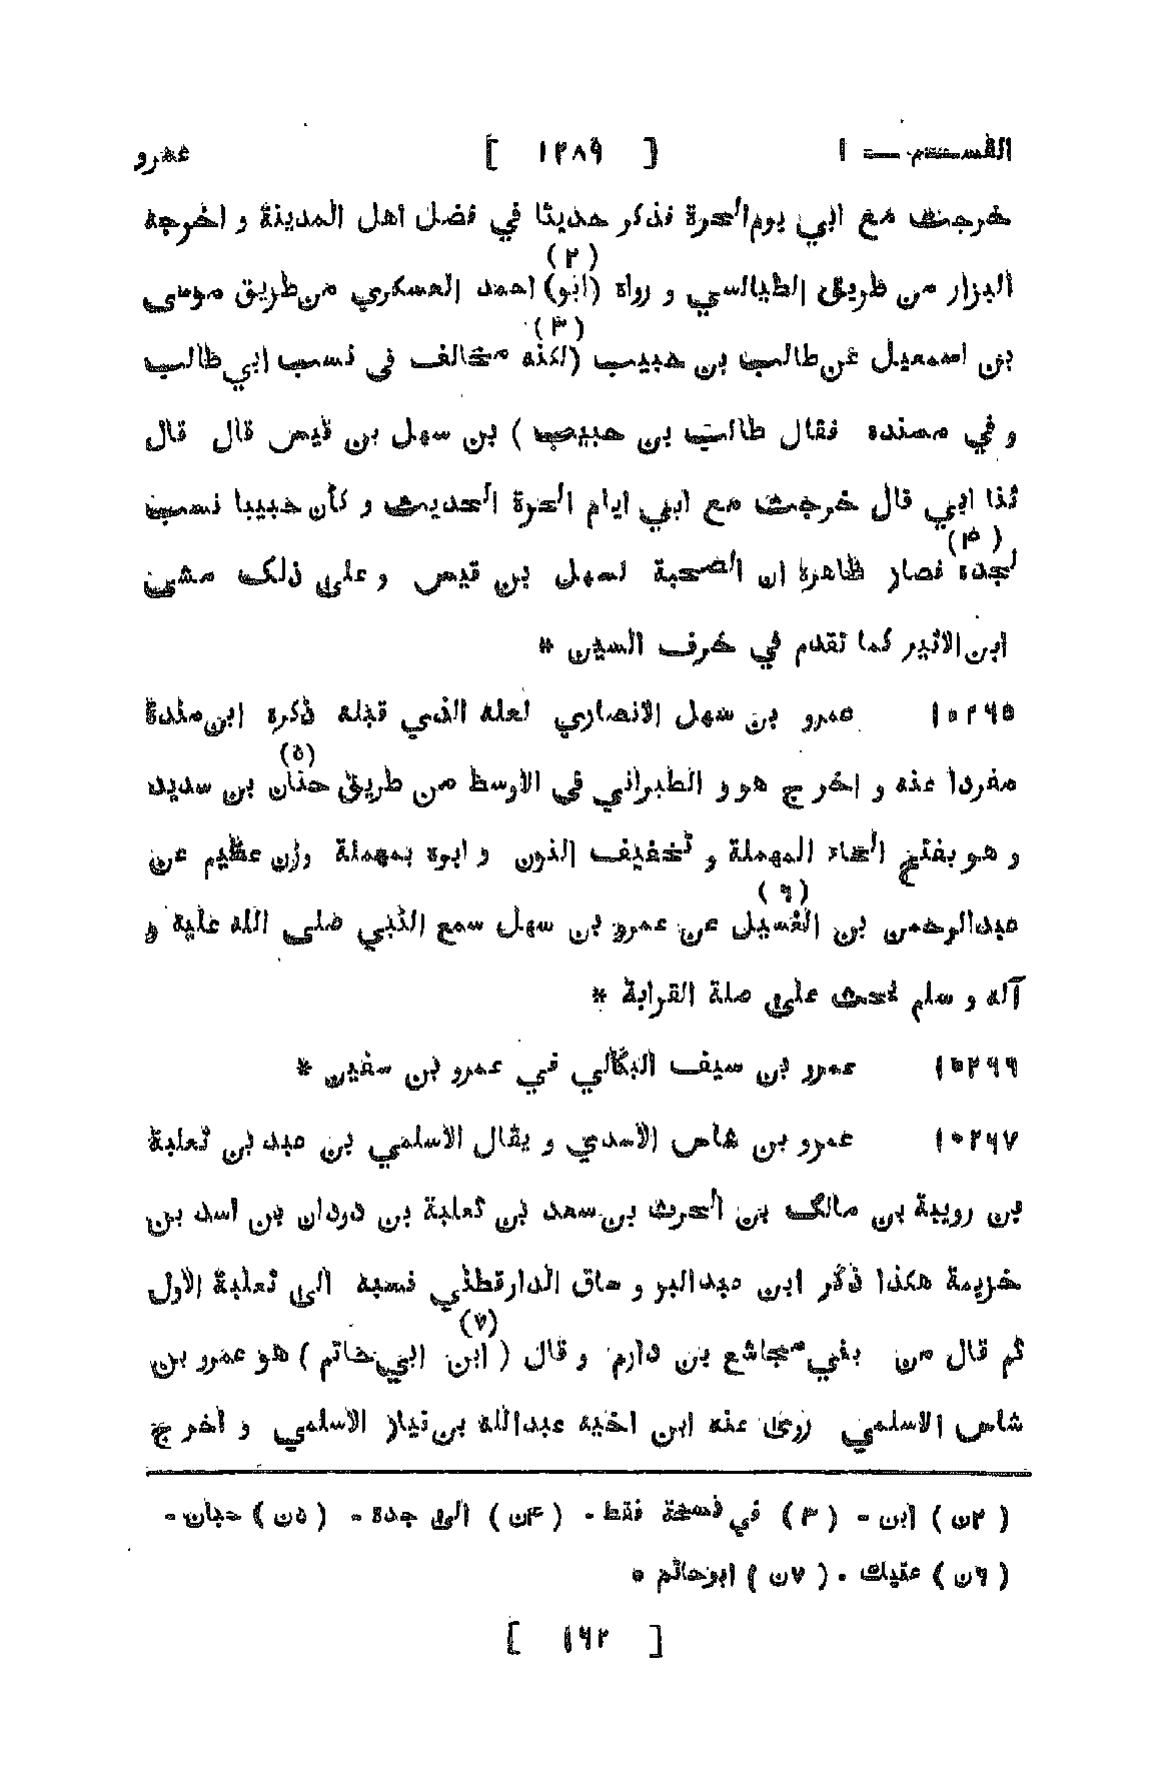 القسم — ١ [ ١٢٨٩ ] عمرو
خرجت مع ابي يوم الحرة فذكر حديثا في فضل اهل المدينة و اخرجه
البزار من طريق الطيالسي و رواه (ابو) (٢) احمد العسكري من طريق موسى
بن اسمعيل عن طالب بن حبيب (لكنه (٣) مخالف في نسب ابي طالب
و في مسنده فقال طالب بن حبيب ) بن سهل بن قيس قال قال
ثنا ابي قال خرجت مع ابي ايام الحرة الحديث و كأن حبيبا نسب
لجده (۴) فصار ظاهره ان الصحبة لسهل بن قيس و على ذلک مشى
ابن الاثير كما تقدم في حرف السين *
١٠٢٦٥ عمرو بن سهل الانصاري لعله الذي قبله ذكره ابن مندة
مفردا عنه و اخرج هو و الطبراني في الاوسط من طريق حنان (٥) بن سديد
و هو بفتح الحاء المهملة و تخفيف النون و ابوه بمهملة وزن عظيم عن
عبدالرحمن بن الغسيل (٦) عن عمرو بن سهل سمع النبي صلى الله عليه و
آله و سلم يحث على صلة القرابة *
١٠٢٦٦ عمرو بن سيف البكالي في عمرو بن سفين *
١٠٢٦٧ عمرو بن شاس الاسدي و يقال الاسلمي بن عبد بن ثعلبة
بن رويبة بن مالک بن الحرث بن سعد بن ثعلبة بن دردان بن اسد بن
خزيمة هكذا ذكر ابن عبدالبر و ساق الدارقطني نسبه الى ثعلبة الاول
ثم قال من بني مجاشع بن دارم و قال ( ابن (٧) ابي حاتم ) هو عمرو بن
شاس الاسلمي روى عنه ابن اخيه عبدالله بن نيار الاسلمي و اخرج
( ٢ن ) ابن - ( ٣ ) في نسخة فقط - ( ۴ن ) الى جده - ( ٥ن ) حبان -
( ٦ن ) عتيك - ( ٧ن ) ابوحاتم *
[ ١٦٢ ]